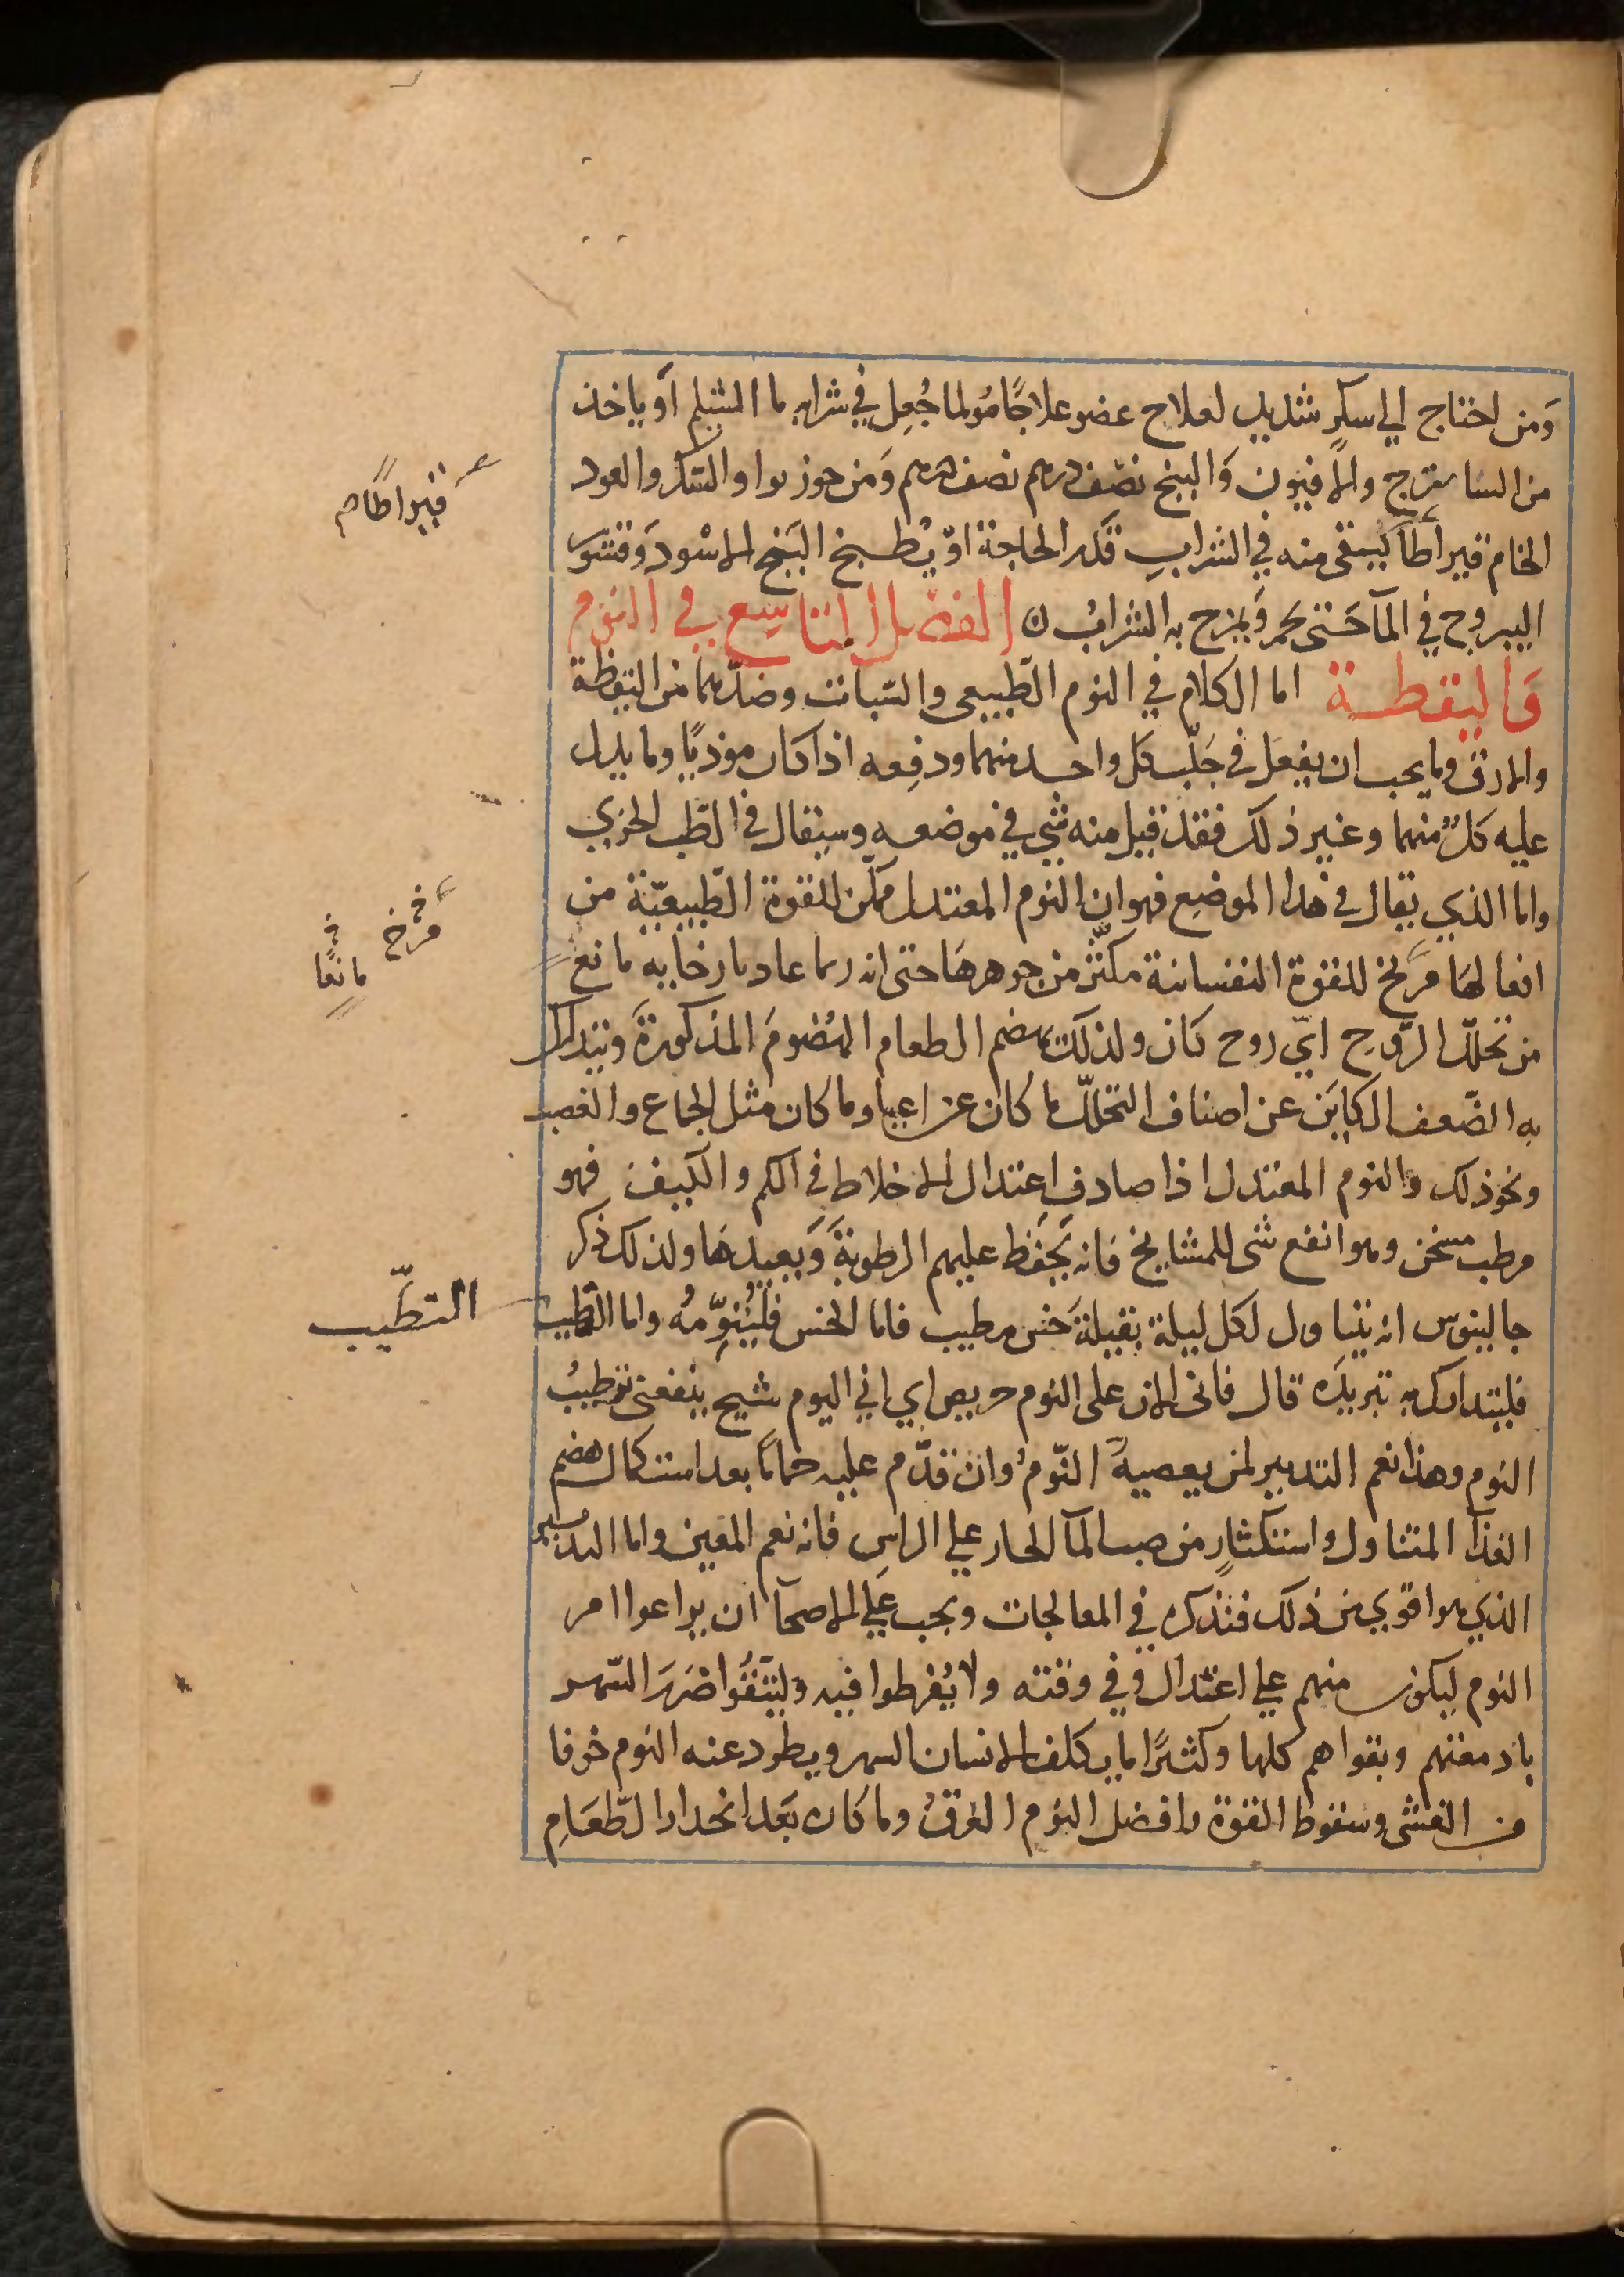 وَمن احتاج الي سكرٍ شديد لعلاج عضو علاجًا مُولما جُعِل في شرابه ما الشيلم اَو ياخذ
من الشاهترج والافيون وَالبنج نصف درهم نصف درهم وَمن جوز بوا والسُّك والعود
الخام قيراطاً يسقى منه في الشرابِ قَدر الحاجة اوْ يُطبخ البَنج الاسْود وَقشور
اليبروح في المآ حَتى يحمر وَيمزج به الشرابُ ن الفصْل التاسِع في النوم
وَاليقظة اما الكلام في النوم الطّبيعي والسّبات وضدّهما من اليقظة
والارق وما يجب ان يفعل في جَلْب كل واحد منهما ودفعِه اذا كان موذيًا وما يدل
عليه كلٌ منهما وغير ذلك فقد قيل منه شي في موضعه وسيقال في الطّب الجزيي
واما الذي يقال في هذا الموضع فهو ان النوم المعتدل ممكّن للقوة الطّبيعيّة من
افعالهَا مُرَخٍ للقوة النفسانية مكثّر من جوهرهَا حتى انه ربما عاد بارخايه مانع
من تحلّل الرّوح ايّ روح كان ولذلك يهضم الطعام الهُضومَ المذكورةَ ويتدارك
به الضّعف الكاين عن اصناف التحلّل ما كان عن اعيا وما كان مثل الجماع والغضب
ونحو ذلك والنوم المعتدل اذا صادف اعتدال الاخلاط في الكم والكيف فهو
مرطب مسخن وهو انفع شى للمشايخ فانه يَحفَظ عليهم الرطوبةَ وَيعيدهَا ولذلك ذكر
جالينوس انه يتناول لكل ليلة بقيلةَ خس مطيب فاما الخس فليُنوِّمهُ واما التطييب
فليتدارك به تبريدَه قال فانى الان على النوم حريص اي اني اليوم شيخ ينفعنى ترطيبُ
النوم وهذا نعم التدبير لمن يعصيهُ النّومُ وان قدّم عليه حمامًا بعد استكمال هضم
الغذا المتناول واستكثارٍ من صب المآ الحار علي الراسِ فانه نعم المعين واما التدبير
الذي هو اقوي من ذلك فنذكره في المعالجات ويجب عَلي الاصحآ ان يراعوا امر
النوم ليكون منهم علي اعتدال وفي وقته ولا يُفرطوا فيه وليتّقُوا ضَررَ السّهر
بادمغتهم وبقواهم كلها وكثيرًا ما يكلف الانسان السهر ويطرد عنه النوم خوفا
من الغشى وسقوط القوة وافضل النوم الغرقُ وما كان بَعد انحدار الطّعَامِ
قيراطا م
مرخ
مانعًا
التطّيب